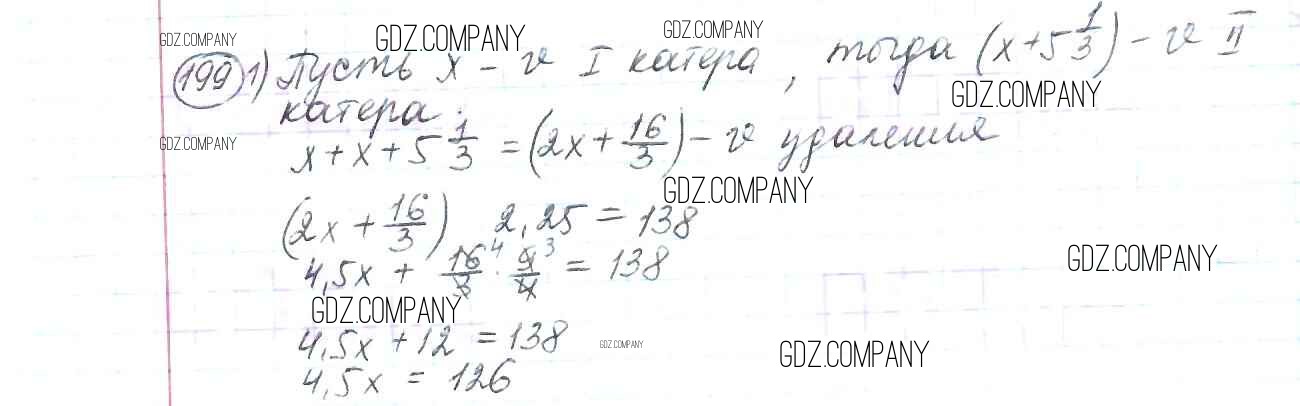 GDZ.COMPANY GDZ.COMPANY GDZ.COMPANY
199 1) Пусть x - v I катера, тогда (x+5 1/3) - v II
GDZ.COMPANY
катера.
GDZ.COMPANY
x + x + 5 1/3 = (2x + 16/3) - v удаления
GDZ.COMPANY
(2x + 16/3) 2,25 = 138
4,5x + 16⁴/3 · 9³/4 = 138
GDZ.COMPANY
GDZ.COMPANY
4,5x + 12 = 138
GDZ.COMPANY
GDZ.COMPANY
4,5x = 126